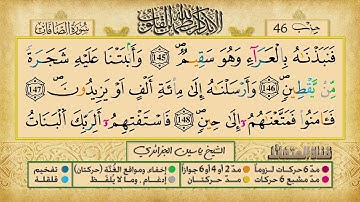 حزب 46
ألا بذكر الله تطمئن القلوب
سورة الصافات
فَنَبَذْنَٰهُ بِالْعَرَآءِ وَهُوَ سَقِيمٌ ١٤٥ وَأَنۢبَتْنَا عَلَيْهِ شَجَرَةً
مِّن يَقْطِينٍ ١٤٦ وَأَرْسَلْنَٰهُ إِلَىٰ مِا۟ئَةِ أَلْفٍ أَوْ يَزِيدُونَ ١٤٧
فَـَٔامَنُوا۟ فَمَتَّعْنَٰهُمْ إِلَىٰ حِينٍ ١٤٨ فَاسْتَفْتِهِمْ أَلِرَبِّكَ الْبَنَاتُ
الشيخ ياسين الجزائري
مدّ 6 حركات لزوماً مدّ 2 أو 4 أو 6 جوازاً إخفاء ومواقع الغنّة (حركتان) تفخيم
مدّ مشبع 6 حركات مدّ حركتان إدغام , وما لا يلفظ قلقلة